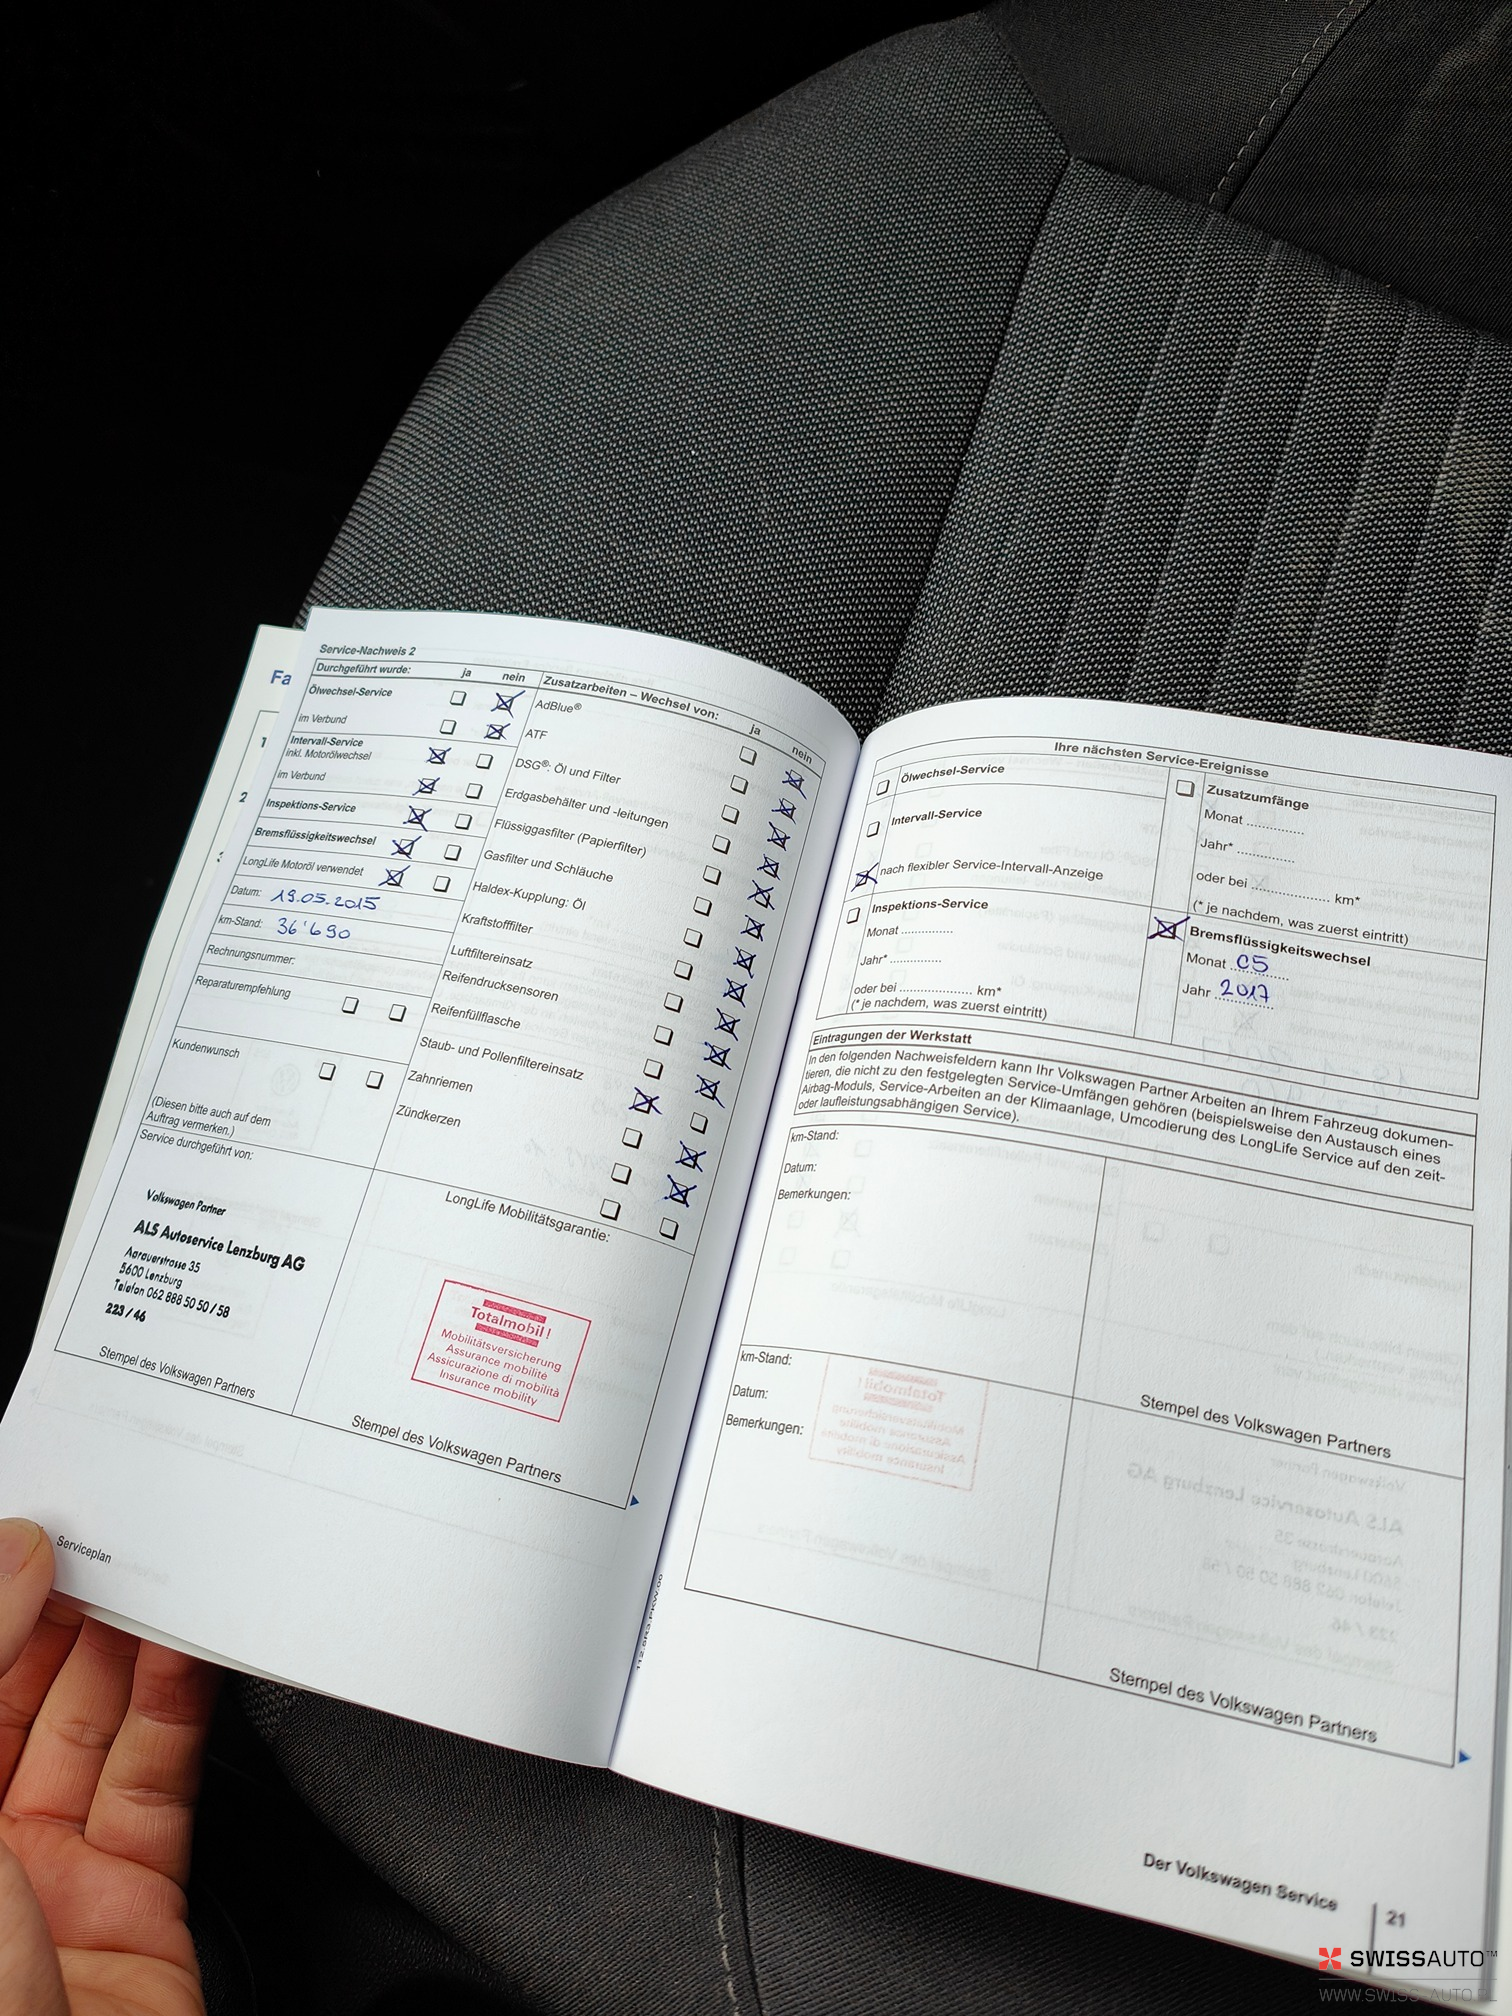 Fa
1
2
Service-Nachweis 2
Durchgeführt wurde: ja nein
Ölwechsel-Service
im Verbund
Intervall-Service
inkl. Motorölwechsel
im Verbund
Inspektions-Service
Bremsflüssigkeitswechsel
LongLife Motoröl verwendet
Datum: 19.05.2015
km-Stand: 36'690
Rechnungsnummer:
Reparaturempfehlung
Kundenwunsch
(Diesen bitte auch auf dem
Auftrag vermerken.)
Service durchgeführt von:
Volkswagen Partner
ALS Autoservice Lenzburg AG
Aarauerstrasse 35
5600 Lenzburg
Telefon 062 888 50 50 / 58
223 / 46
Stempel des Volkswagen Partners
Zusatzarbeiten – Wechsel von: ja nein
AdBlue®
ATF
DSG®: Öl und Filter
Erdgasbehälter und -leitungen
Flüssiggasfilter (Papierfilter)
Gasfilter und Schläuche
Haldex-Kupplung: Öl
Kraftstofffilter
Luftfiltereinsatz
Reifendrucksensoren
Reifenfüllflasche
Staub- und Pollenfiltereinsatz
Zahnriemen
Zündkerzen
LongLife Mobilitätsgarantie:
Totalmobil!
Mobilitätsversicherung
Assurance mobilité
Assicurazione di mobilità
Insurance mobility
Stempel des Volkswagen Partners
Serviceplan
Ihre nächsten Service-Ereignisse
Ölwechsel-Service
Intervall-Service
nach flexibler Service-Intervall-Anzeige
Inspektions-Service
Monat ..............
Jahr* ..............
oder bei .................... km*
(* je nachdem, was zuerst eintritt)
Zusatzumfänge
Monat ..............
Jahr* ..............
oder bei .................... km*
(* je nachdem, was zuerst eintritt)
Bremsflüssigkeitswechsel
Monat 05
Jahr 2017
Eintragungen der Werkstatt
In den folgenden Nachweisfeldern kann Ihr Volkswagen Partner Arbeiten an Ihrem Fahrzeug dokumen-
tieren, die nicht zu den festgelegten Service-Umfängen gehören (beispielsweise den Austausch eines
Airbag-Moduls, Service-Arbeiten an der Klimaanlage, Umcodierung des LongLife Service auf den zeit-
oder laufleistungsabhängigen Service).
km-Stand:
Datum:
Bemerkungen:
Stempel des Volkswagen Partners
km-Stand:
Datum:
Bemerkungen:
Stempel des Volkswagen Partners
Der Volkswagen Service
21
SWISSAUTO™